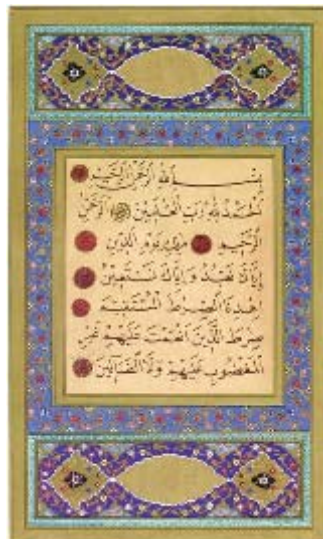 بِسْمِ اللَّهِ الرَّحْمَٰنِ الرَّحِيمِ
الْحَمْدُ لِلَّهِ رَبِّ الْعَٰلَمِينَ الرَّحْمَٰنِ
الرَّحِيمِ مَٰلِكِ يَوْمِ الدِّينِ
إِيَّاكَ نَعْبُدُ وَإِيَّاكَ نَسْتَعِينُ
اهْدِنَا الصِّرَٰطَ الْمُسْتَقِيمَ
صِرَٰطَ الَّذِينَ أَنْعَمْتَ عَلَيْهِمْ غَيْرِ
الْمَغْضُوبِ عَلَيْهِمْ وَلَا الضَّآلِّينَ